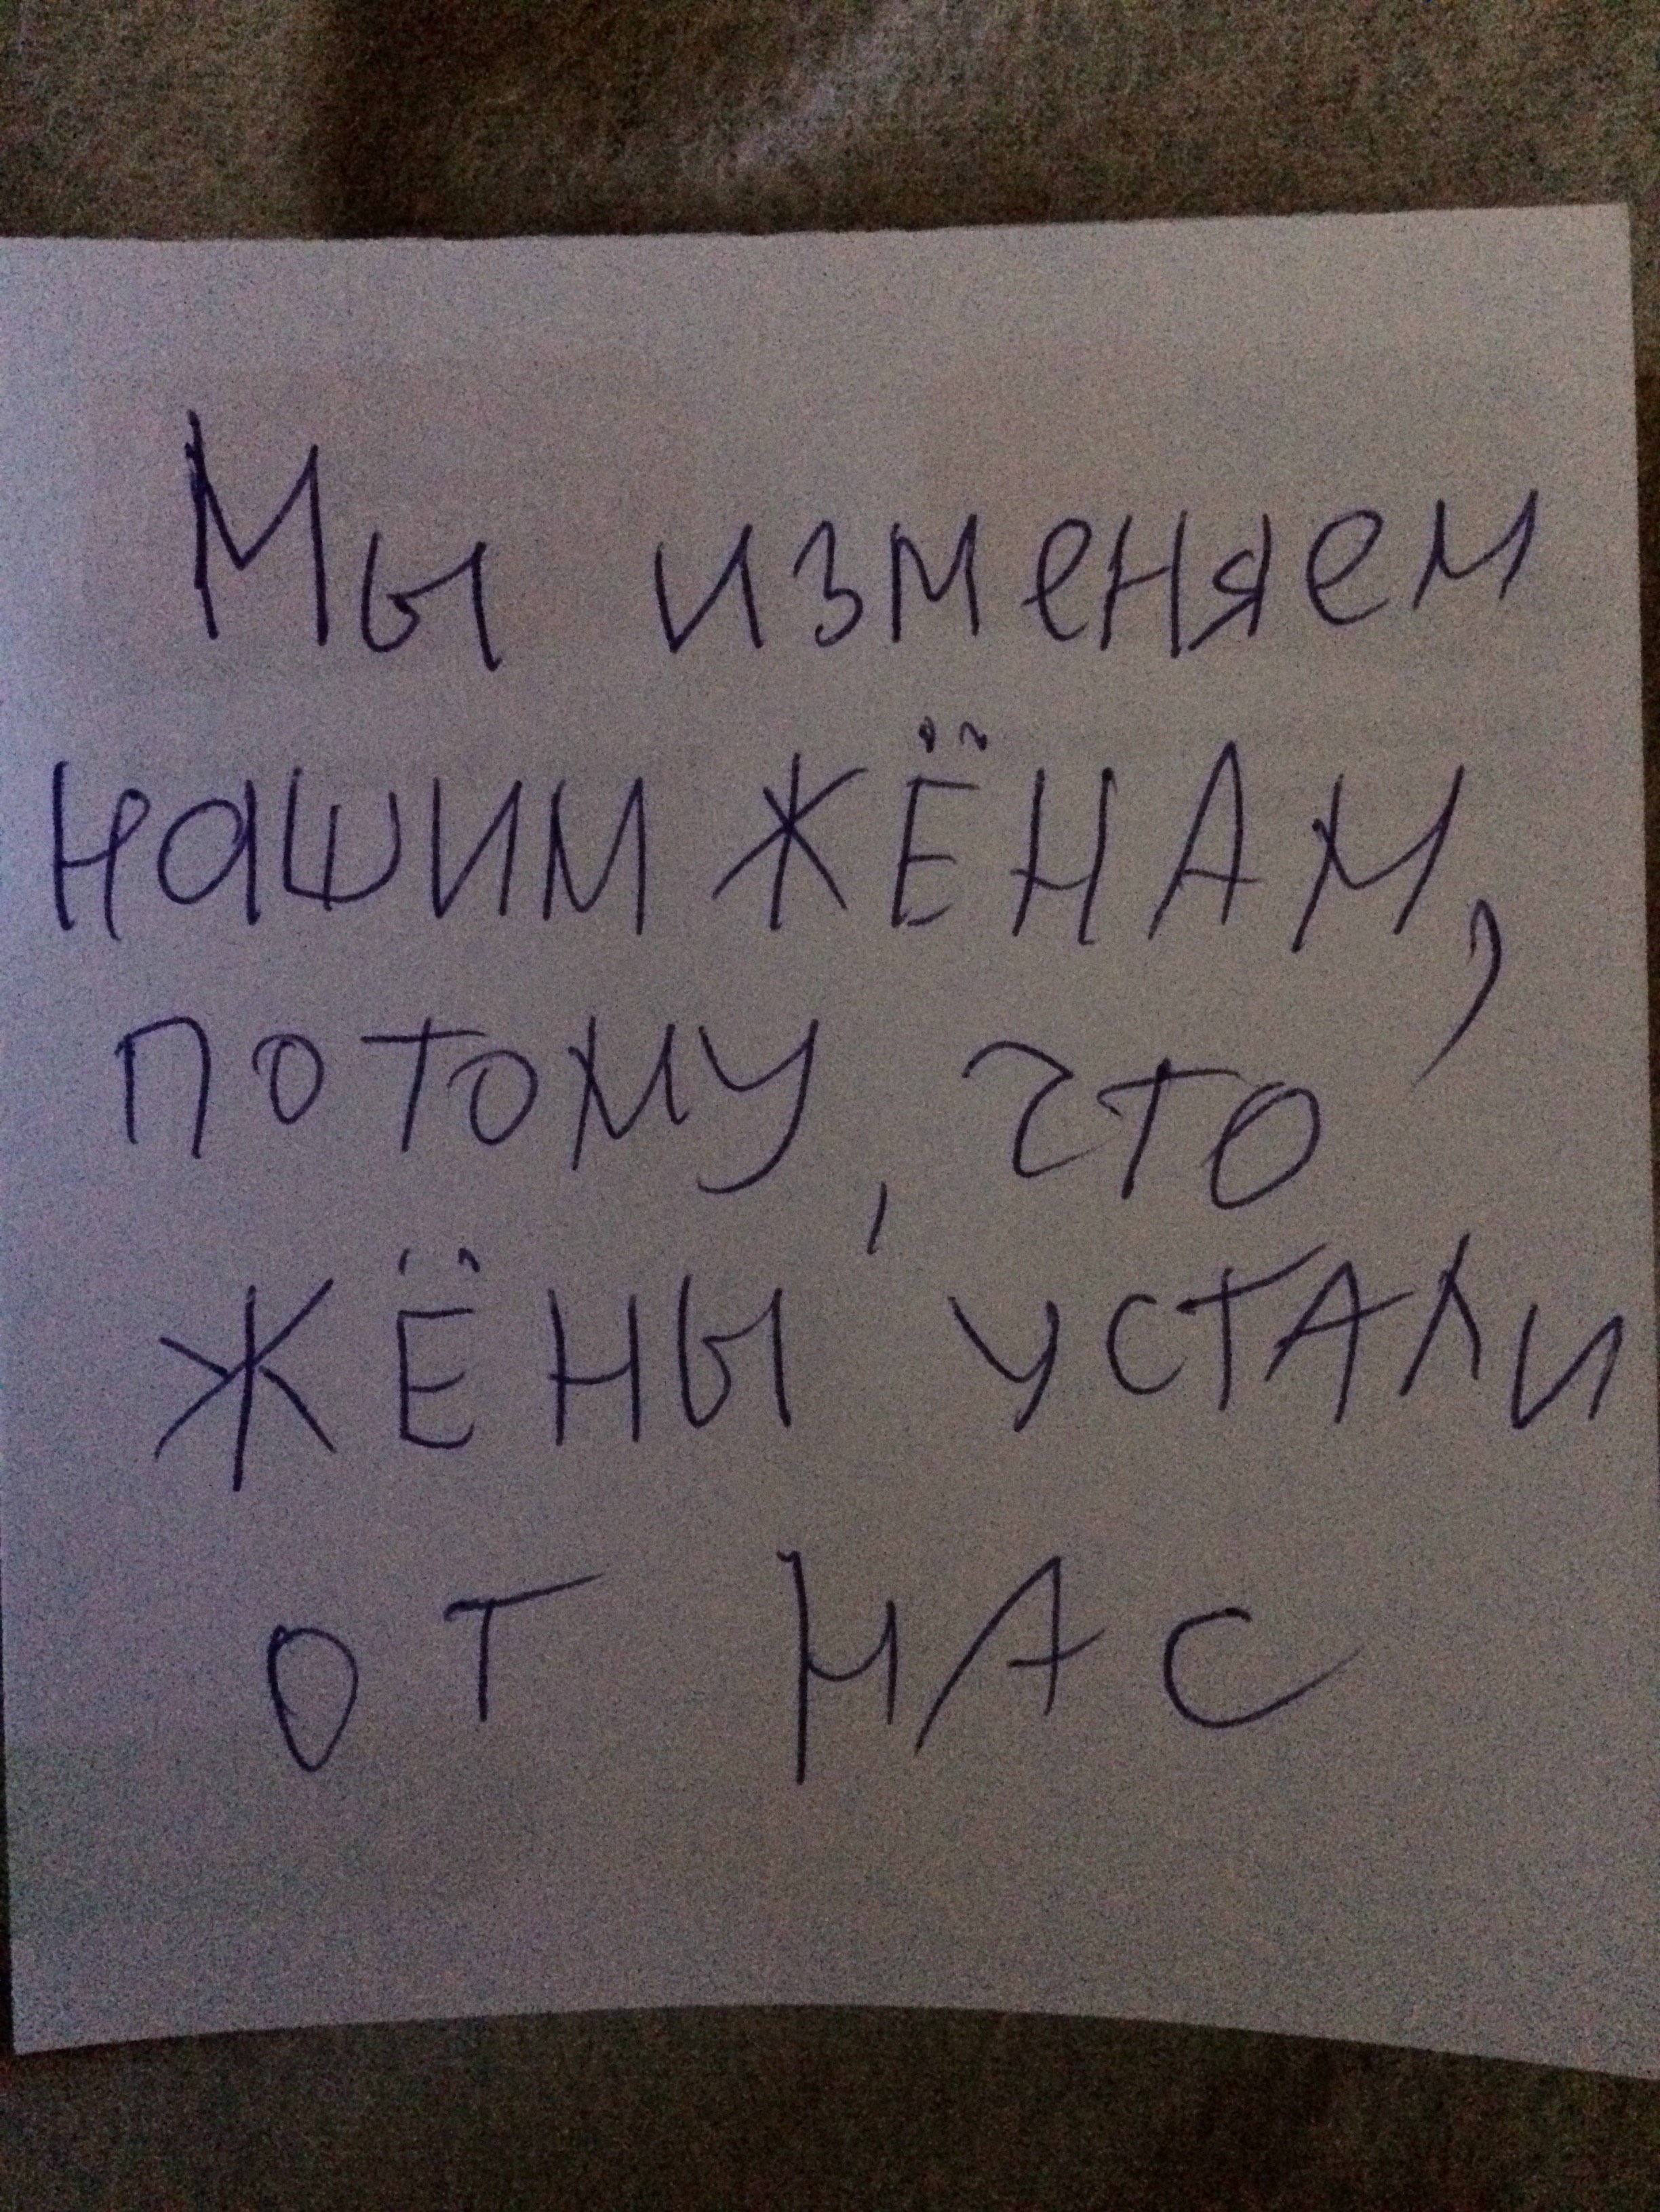 Мы изменяем
нашим ЖЁНАМ,
потому, что
ЖЁНЫ УСТАЛИ
ОТ НАС